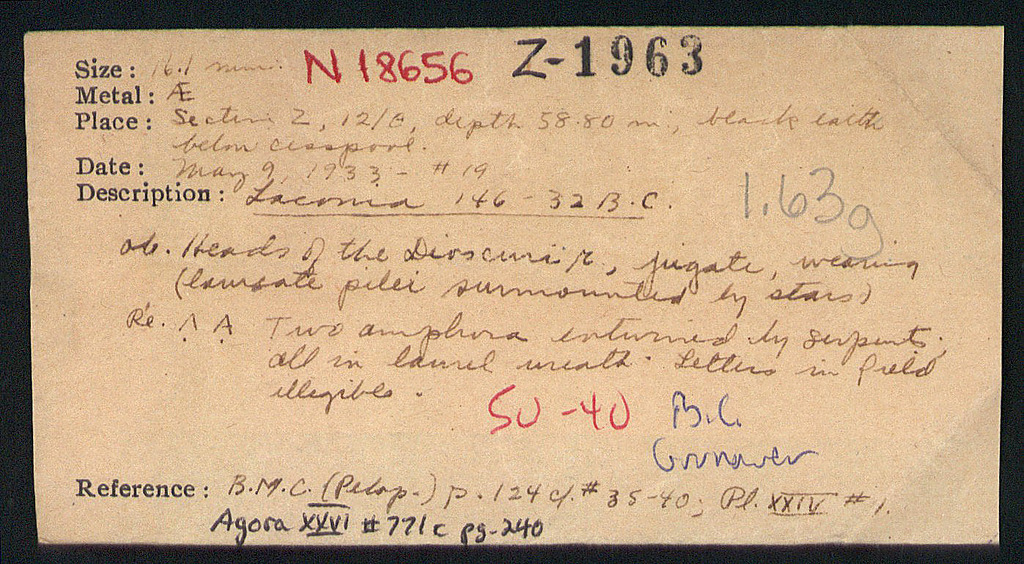 N 18656 Z-1963
Size: 16.1 mm.
Metal: Æ
Place: Section Z, 12/, depth 58.80 m, black earth
below cesspool.
Date: May 9, 1933 - #19
Description: Laconia 146 - 32 B.C.
1.63g
ob. Heads of the Dioscuri r., jugate, wearing
(laureate pilei surmounted by stars)
Re. Λ A Two amphora entwined by serpents,
all in laurel wreath. Letters in field
illegible.
50-40 B.C.
Grunauer
Reference: B.M.C. (Pelop.) p. 124 cf. # 38-40; Pl. XXIV # 1.
Agora XXVI # 771c pg-240